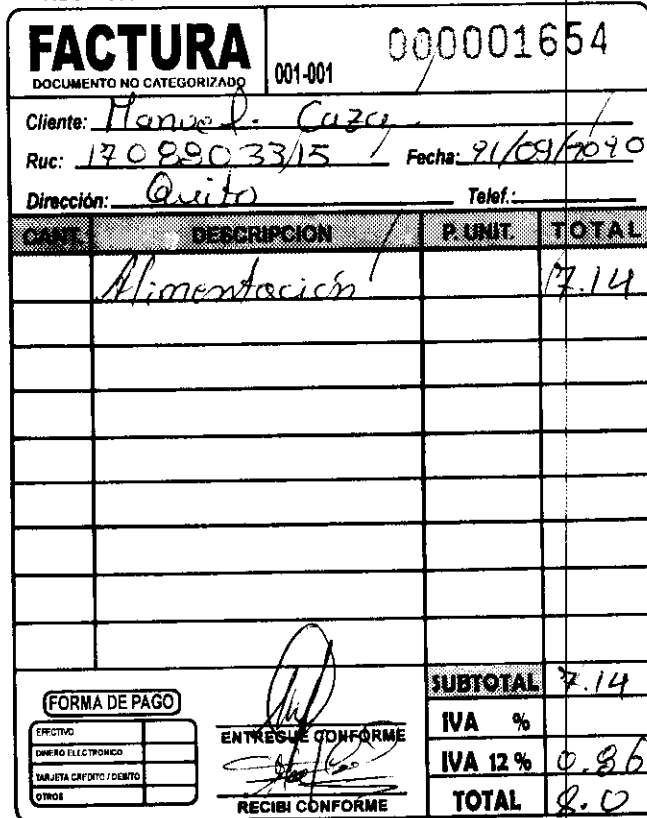 FACTURA
DOCUMENTO NO CATEGORIZADO
001-001
000001654
Cliente: Manuel. Caza
Ruc: 1708903315 Fecha: 21/09/2020
Dirección: Quito Telef.:
CANT. DESCRIPCION P. UNIT. TOTAL
Alimentación 7.14
SUBTOTAL 7.14
FORMA DE PAGO
EFECTIVO
DINERO ELECTRONICO
TARJETA CREDITO / DEBITO
OTROS
ENTREGUE CONFORME
RECIBI CONFORME
IVA %
IVA 12 % 0.86
TOTAL 8.0